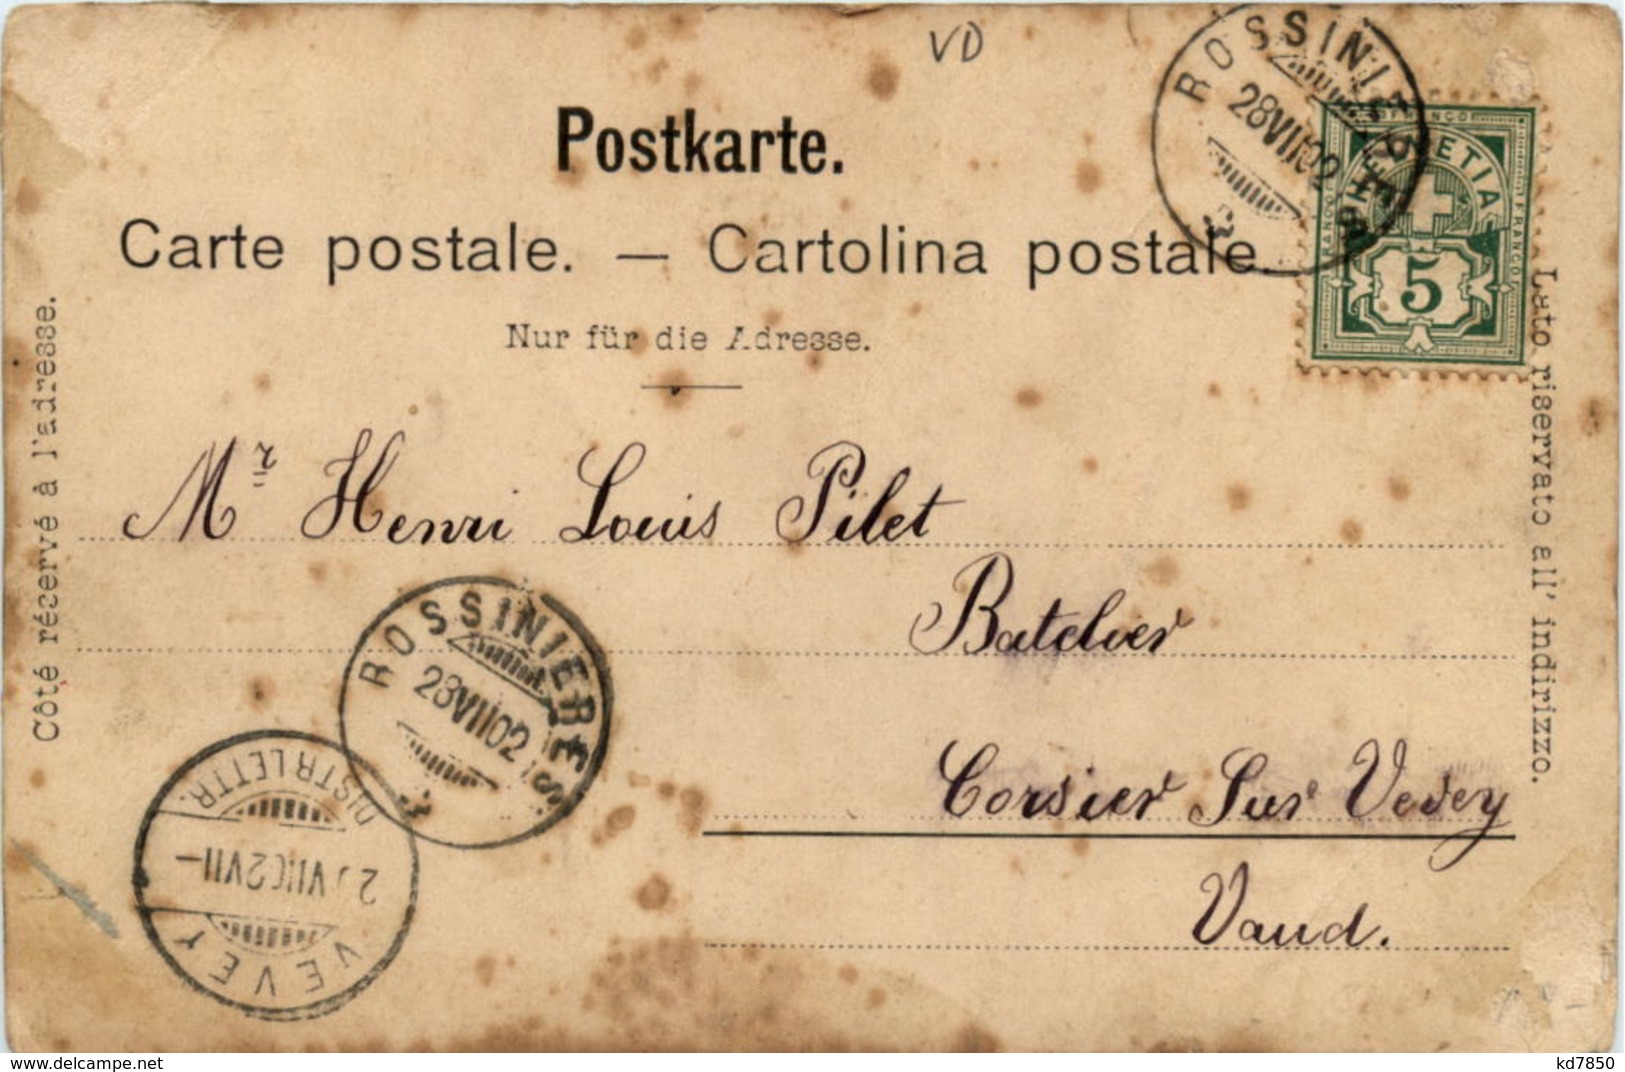 VD
Postkarte.
Carte postale. — Cartolina postale.
Nur für die Adresse.
Côté réservé à l'adresse.
Lato riservato all' indirizzo.
ROSSINIERES
28 VII 02
HELVETIA
FRANCO
5
Mr Henri Louis Pilet
Batelier
Corsier Sur Vevey
Vaud.
ROSSINIERES
28 VII 02
DISTR. LETTR.
VII 02 VII –
VEVEY
www.delcampe.net
kd7850